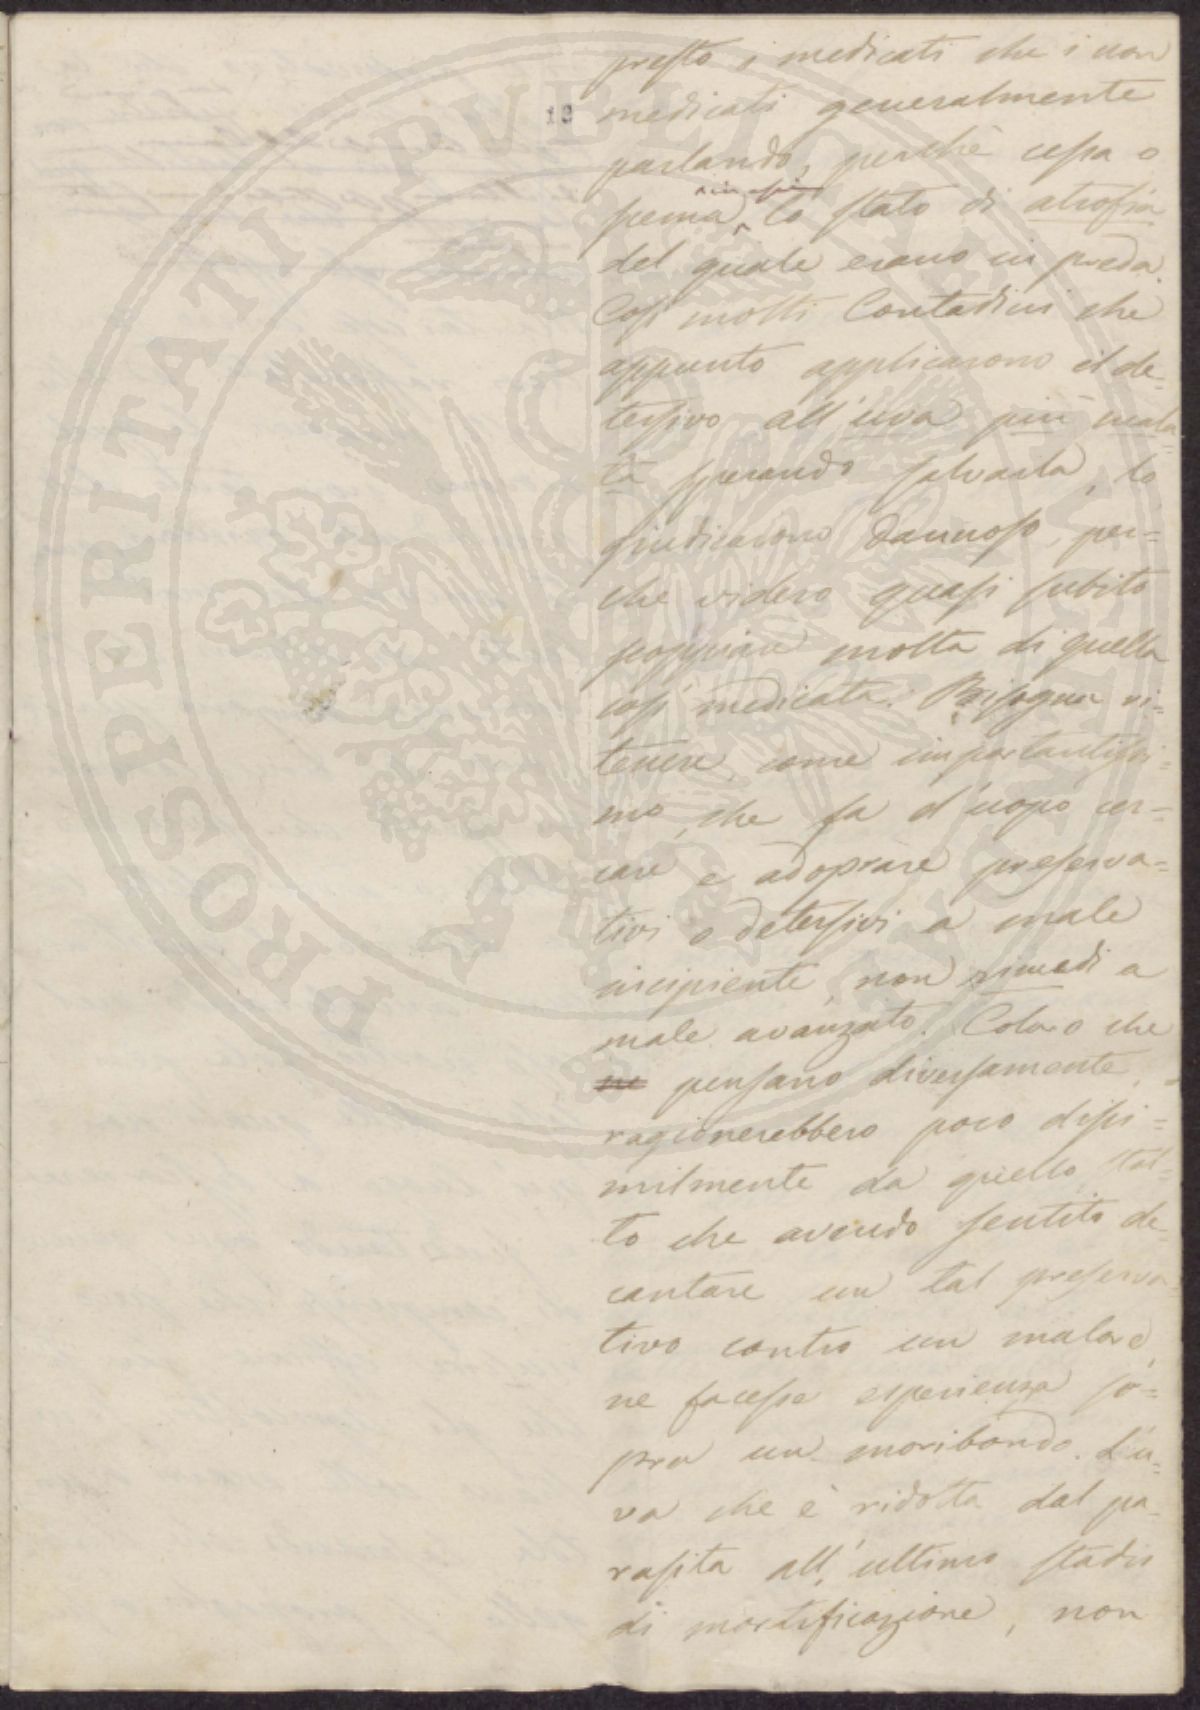 PROSPERITATI PUBLICAE
13
presto i medicati che i non
medicati generalmente
parlando, perchè cessa o
scema in essi lo stato di atrofia
del quale erano in preda.
Così molti Contadini che
appunto applicarono il de=
tersivo all'uva più mala=
ta sperando salvarla, lo
giudicarono dannoso, per=
che videro quasi subito
scoppiare molta di quella
così medicata. Bisogna ri=
tenere, come importantissi=
mo, che fa d'uopo cer=
care e adoprare preserva=
tivi o detersivi a male
incipiente, non rimedi a
male avanzato. Coloro che
ne pensano diversamente,
ragionerebbero poco dissi=
milmente da quello stol=
to che avendo sentito de=
cantare un tal preserva
tivo contro un malore,
ne facesse esperienza so=
pra un moribondo. L'u=
va che è ridotta dal pa=
rasita all'ultimo stadio
di mortificazione, non